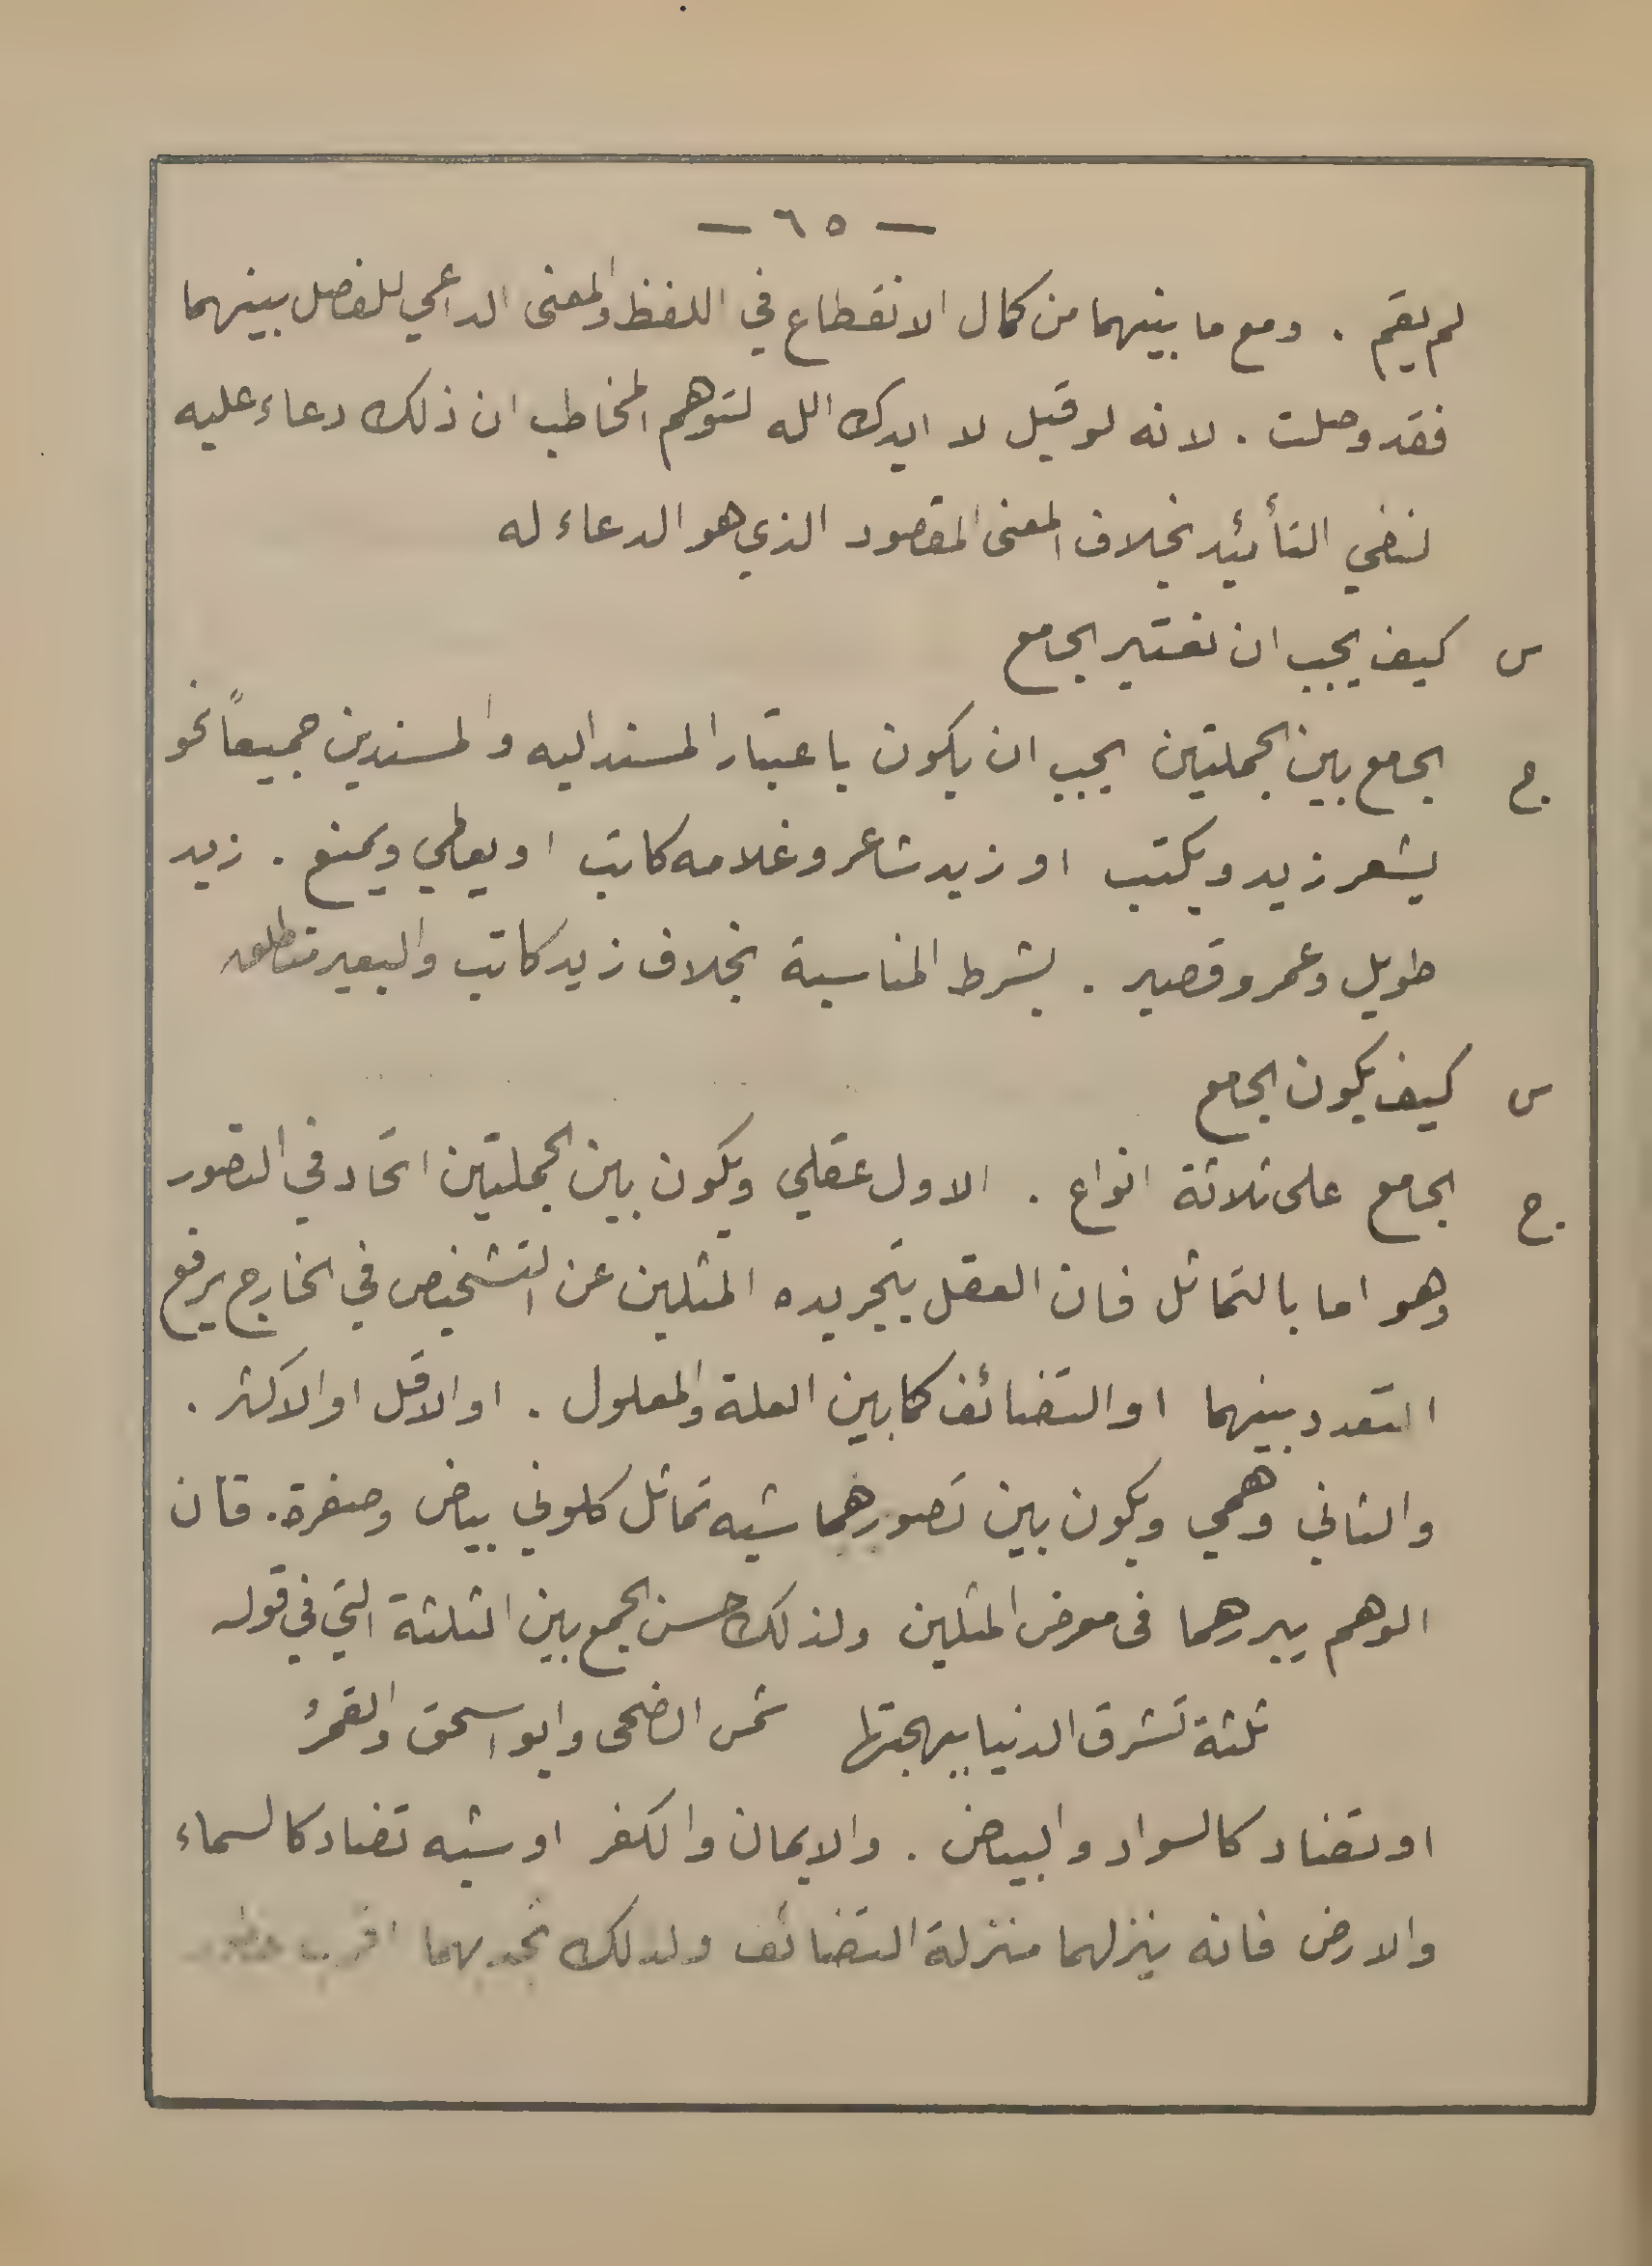 — ٦٥ —
لم يقم . ومع ما بينهما من كمال الانقطاع في اللفظ والمعنى الداعي للفصل بينهما
فقد وصلت . لانه لو قيل لا ايدك الله لتوهم المخاطب ان ذلك دعاء عليه
لنفي التأئيد بخلاف المعنى المقصود الذي هو الدعاء له
س كيف يجب ان نعتبر الجامع
ج الجامع بين الجملتين يجب ان يكون باعتبار المسند اليه والمسندين جميعاً نحو
يشعر زيد ويكتب او زيد شاعر وغلامه كاتب او يعطي ويمنع . زيد
طويل وعمرو قصير . بشرط المناسبة بخلاف زيد كاتب والبعير
س كيف يكون الجامع
ج الجامع على ثلاثة انواع . الاول عقلي ويكون بين الجملتين اتحاد في التصور
وهو اما بالتماثل فان العقل بتجريده المثلين عن التشخيص في الخارج يرفع
التعدد بينهما او التضائف كما بين العلة والمعلول . او الاقل او الاكثر .
والثاني وهمي ويكون بين تصورهما شبه تماثل كلوني بياض وصفرة . فان
الوهم يبررهما فى معرض المثلين ولذلك حسن الجمع بين الثلثة التي في قوله
ثلثة تشرق الدنيا ببهجتها شمس الضحى وابو اسحق والقمرُ
او تضاد كالسواد والبياض . والايمان والكفر او شبه تضاد كالسماء
والارض فانه ينزلهما منزلة التضائف ولذلك